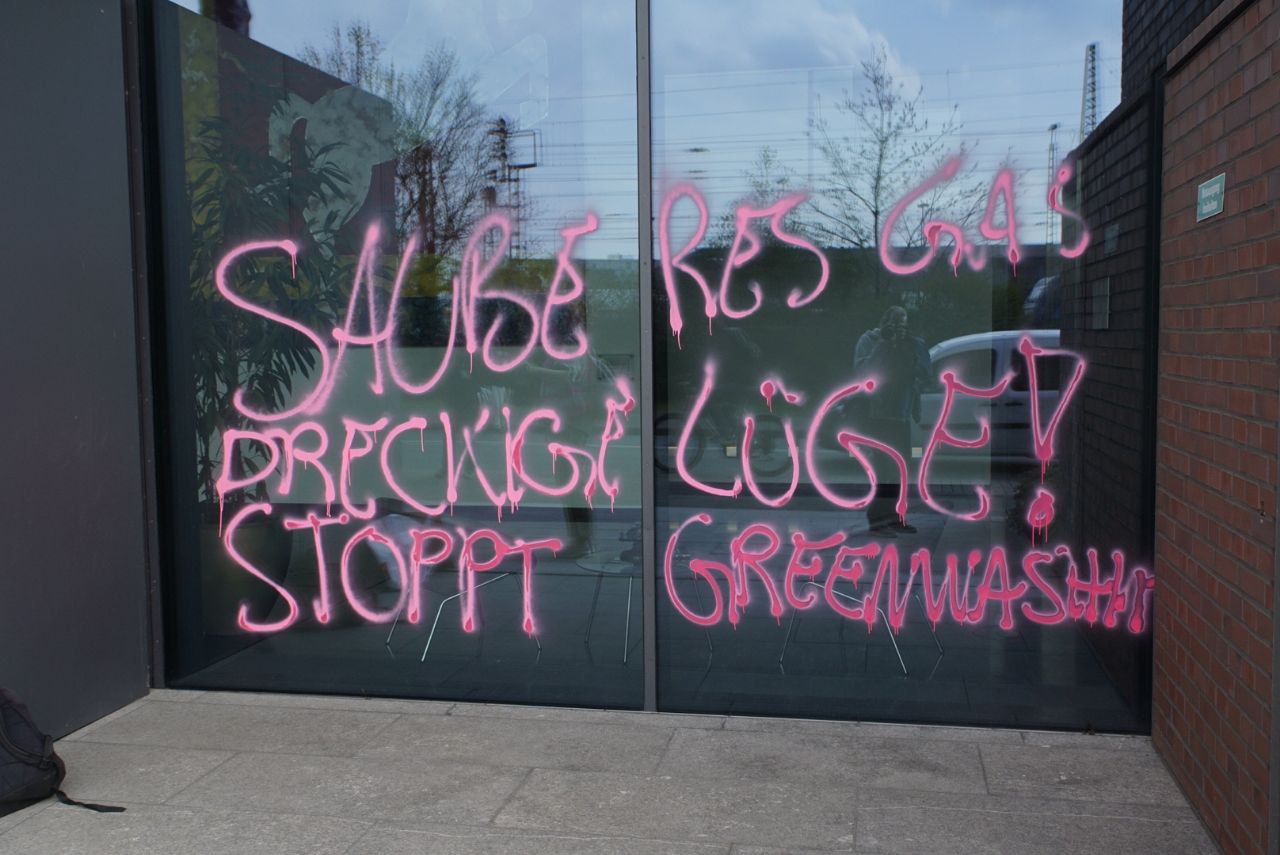 SAUBERES GAS
DRECKIGE LÜGE!
STOPPT GREENWASHIN